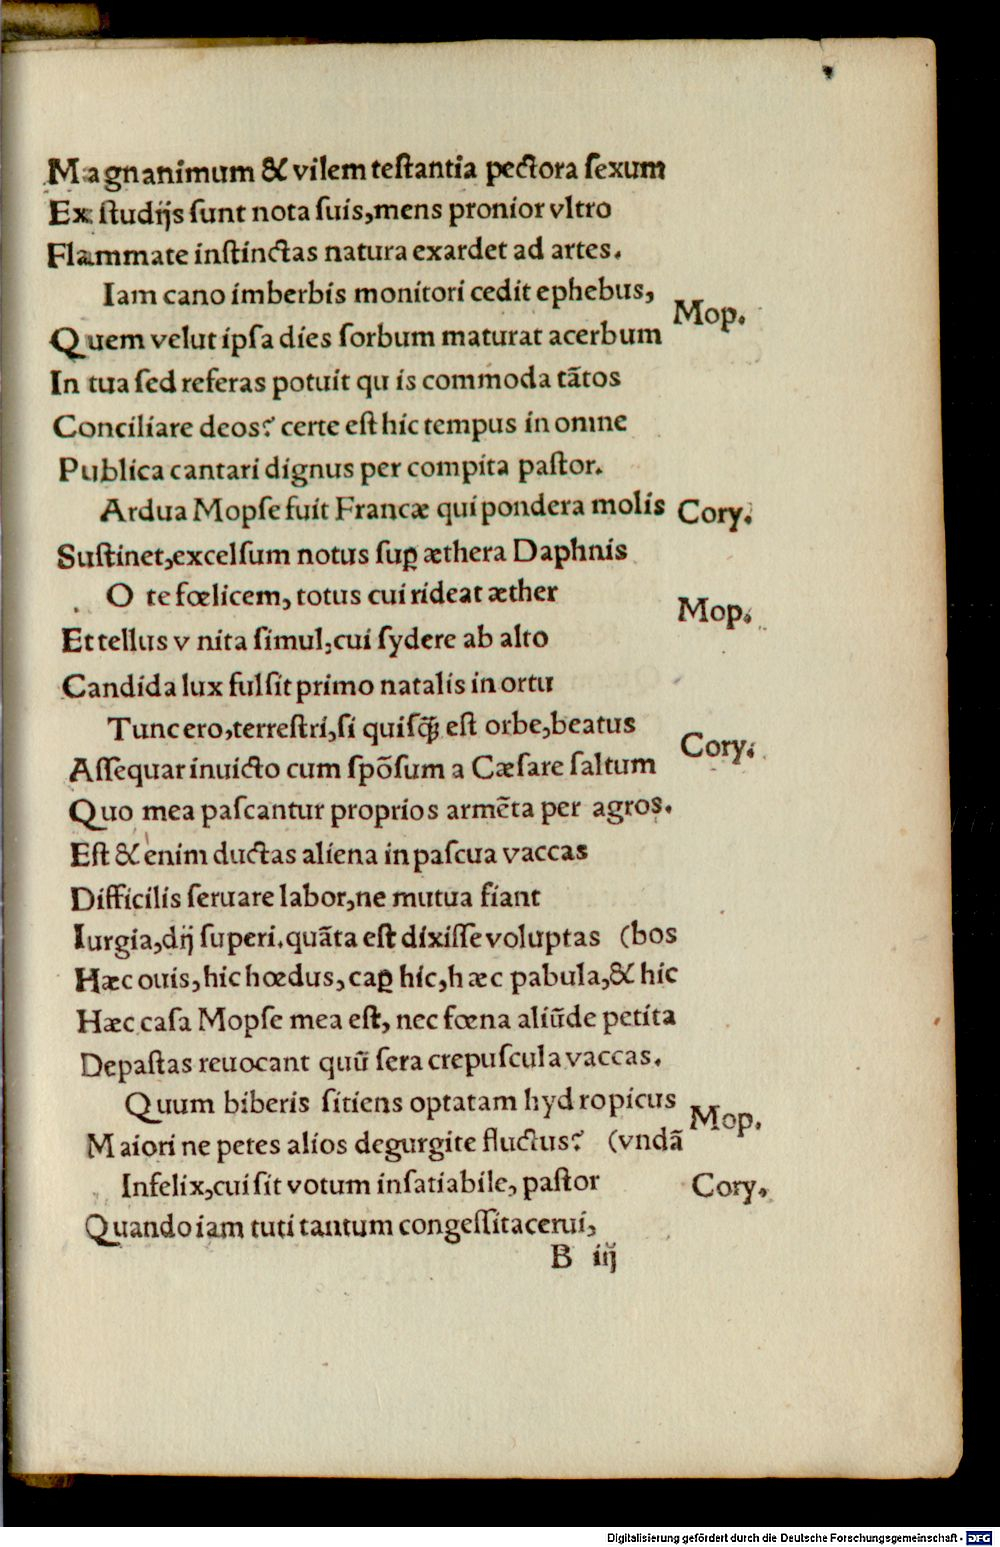 Magnanimum & vilem teſtantia pectora ſexum
Ex ſtudijs ſunt nota ſuis,mens pronior vltro
Flammate inſtinctas natura exardet ad artes.
Iam cano imberbis monitori cedit ephebus,
Mop.
Quem velut ipſa dies ſorbum maturat acerbum
In tua ſed referas potuit quis commoda tãtos
Conciliare deos? certe eſt hic tempus in omne
Publica cantari dignus per compita paſtor.
Ardua Mopſe fuit Francæ qui pondera molis Cory.
Suſtinet,excelſum notus ſuꝑ æthera Daphnis
O te fœlicem, totus cui rideat æther
Mop.
Et tellus vnita ſimul:cui ſydere ab alto
Candida lux fulſit primo natalis in ortu
Tunc ero,terreſtri,ſi quiſꝙ eſt orbe,beatus
Cory.
Aſſequar inuicto cum ſpõſum a Cæſare ſaltum
Quo mea paſcantur proprios armẽta per agros.
Eſt & enim ductas aliena in paſcua vaccas
Difficilis ſeruare labor,ne mutua fiant
Iurgia,dij ſuperi.quãta eſt dixiſſe voluptas (bos
Hæc ouis, hic hœdus, caꝑ hic,hæc pabula,& hic
Hæc caſa Mopſe mea eſt, nec fœna aliũde petita
Depaſtas reuocant quũ ſera crepuſcula vaccas.
Quum biberis ſitiens optatam hydropicus
Mop.
Maiori ne petes alios degurgite fluctus? (vndã
Infelix,cui ſit votum inſatiabile, paſtor Cory.
Quando iam tuti tantum congeſſit acerui,
B iij
Digitalisierung gefördert durch die Deutsche Forschungsgemeinschaft - DFG